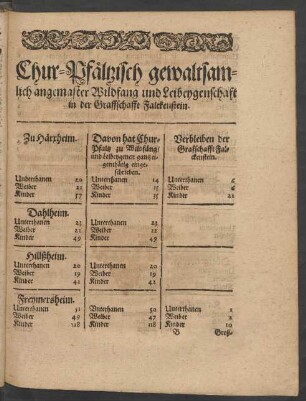 Chur-Pfältzisch gewaltsam-
lich angemaster Wildfang und Leibeygenschafft
in der Graffschafft Falckenstein.
Zu Härxheim.
Davon hat Chur-
Pfaltz zu Wildfäng
und Leibeygenen
schrieben.
Verbleiben der
Graffschafft Fal-
ckenstein.
Unterthanen 20 Unterthanen 14 Unterthanen 6
Weiber 21 Weiber 15 Weiber 6
Kinder Kinder Kinder
Dahlheim.
Unterthanen 23 Unterthanen 23
Weiber 21 Weiber 21
Kinder 49 Kinder 49
Hillßheim.
Unterthanen 20 Unterthanen 20
Weiber 19 Weiber 19
Kinder 41 Kinder 41
Freymersheim.
Unterthanen 51 Unterthanen 50 Unterthanen 1
Weiber 49 Weiber 47 Weiber 2
Kinder 128 Kinder 118 Kinder 10
B Groß-